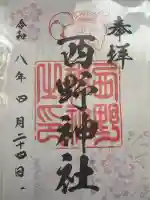 奉拝
西野神社
令和八年四月二十四日